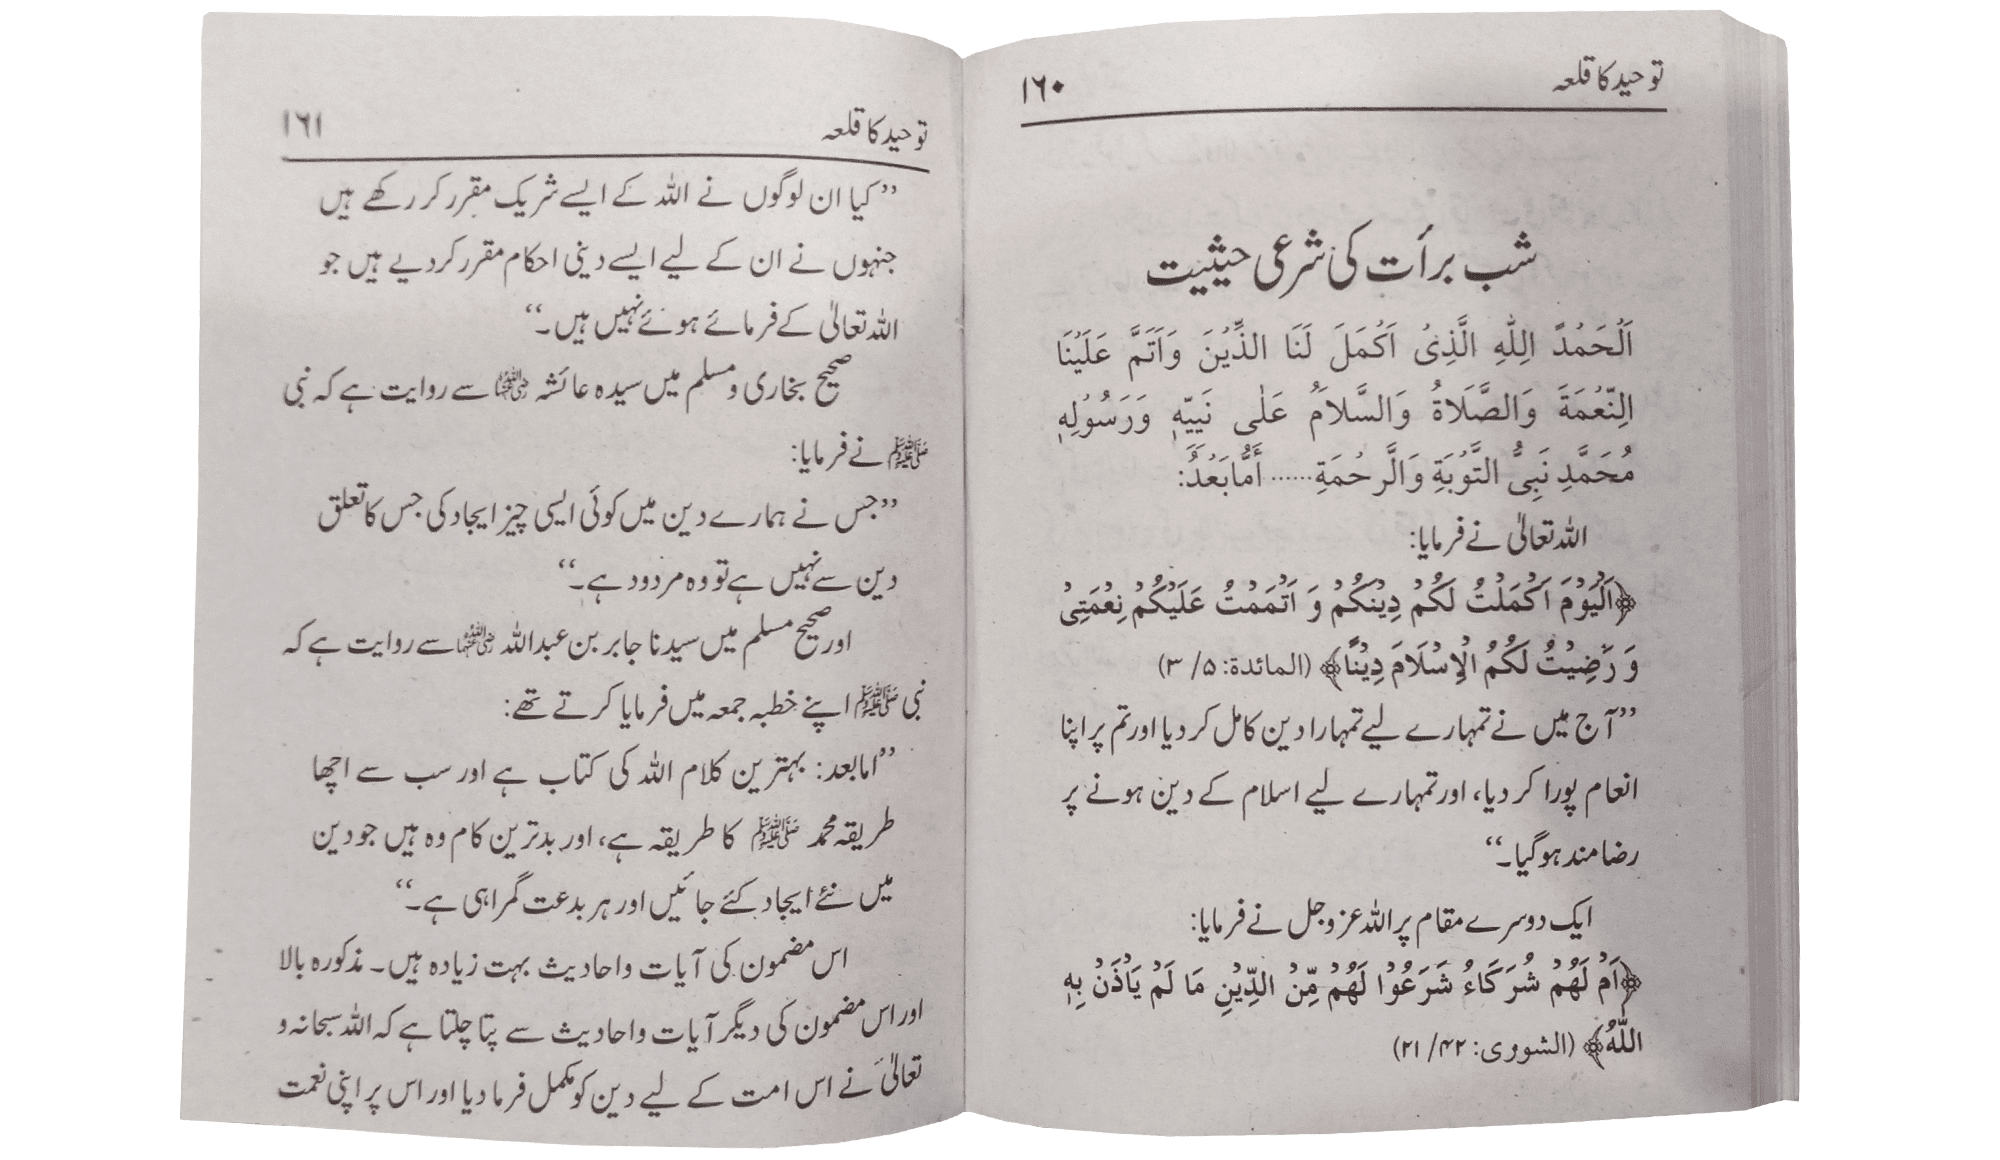 توحید کا قلعہ ۱۶۰
شب برأت کی شرعی حیثیت
اَلْحَمْدُ لِلّٰهِ الَّذِىْ اَكْمَلَ لَنَا الدِّيْنَ وَاَتَمَّ عَلَيْنَا
النِّعْمَةَ وَالصَّلَاةُ وَالسَّلَامُ عَلٰى نَبِيِّهٖ وَرَسُوْلِهٖ
مُحَمَّدِ نَبِىِّ التَّوْبَةِ وَالرَّحْمَةِ ...... أَمَّا بَعْدُ:
اللہ تعالیٰ نے فرمایا:
﴿اَلْيَوْمَ اَكْمَلْتُ لَكُمْ دِيْنَكُمْ وَ اَتْمَمْتُ عَلَيْكُمْ نِعْمَتِىْ
وَ رَضِيْتُ لَكُمُ الْاِسْلَامَ دِيْنًا﴾ (المائدة: ۵/ ۳)
’’آج میں نے تمہارے لیے تمہارا دین کامل کر دیا اور تم پر اپنا
انعام پورا کر دیا، اور تمہارے لیے اسلام کے دین ہونے پر
رضامند ہو گیا۔‘‘
ایک دوسرے مقام پر اللہ عزوجل نے فرمایا:
﴿اَمْ لَهُمْ شُرَكَاءُ شَرَعُوْا لَهُمْ مِّنَ الدِّيْنِ مَا لَمْ يَاْذَنْ بِهِ
اللّٰهُ﴾ (الشورى: ۴۲/ ۲۱)
توحید کا قلعہ ۱۶۱
’’کیا ان لوگوں نے اللہ کے ایسے شریک مقرر کر رکھے ہیں
جنہوں نے ان کے لیے ایسے دینی احکام مقرر کر دیے ہیں جو
اللہ تعالیٰ کے فرمائے ہوئے نہیں ہیں۔‘‘
صحیح بخاری و مسلم میں سیدہ عائشہ رضی اللہ عنہا سے روایت ہے کہ نبی
ﷺ نے فرمایا:
’’جس نے ہمارے دین میں کوئی ایسی چیز ایجاد کی جس کا تعلق
دین سے نہیں ہے تو وہ مردود ہے۔‘‘
اور صحیح مسلم میں سیدنا جابر بن عبداللہ رضی اللہ عنہما سے روایت ہے کہ
نبی ﷺ اپنے خطبہ جمعہ میں فرمایا کرتے تھے:
’’امابعد: بہترین کلام اللہ کی کتاب ہے اور سب سے اچھا
طریقہ محمد ﷺ کا طریقہ ہے، اور بدترین کام وہ ہیں جو دین
میں نئے ایجاد کئے جائیں اور ہر بدعت گمراہی ہے۔‘‘
اس مضمون کی آیات واحادیث بہت زیادہ ہیں۔ مذکورہ بالا
اور اس مضمون کی دیگر آیات واحادیث سے پتا چلتا ہے کہ اللہ سبحانہ و
تعالیٰ نے اس امت کے لیے دین کو مکمل فرما دیا اور اس پر اپنی نعمت